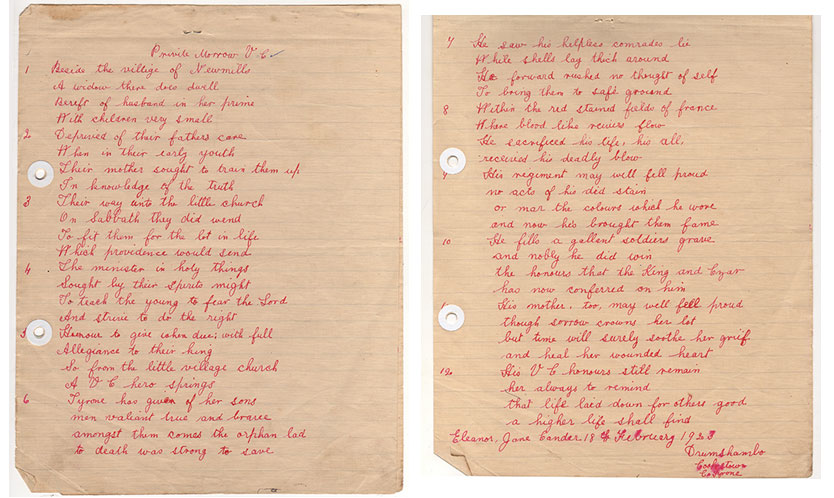 Private Morrow V C
1 Beside the villige of Newmills
A widow there does dwell
Bereft of husband in her prime
With children very small
2 Deprived of their fathers care
When in their early youth
Their mother sought to train them up
In knowledge of the truth
3 Their way unto the little church
On Sabbath they did wend
To fit them for the lot in life
Which providence would send
4 The menister in holy things
Sought by their spirits might
To teach the young to fear the Lord
And strive to do the right
5 Honour to give when due; with full
Allegiance to their king
So from the little village church
A V C hero springs
6 Tyrone has given of her sons
men valiant true and brave
amongst them comes the orphan lad
to death was strong to save
7 He saw his helpless comrades lie
While shells lay thick around
He forward rushed no thought of self
To bring them to safe ground
8 Within the red stained fields of france
Where blood like reviers flow
He sacrificed his life, his all,
receives his deadly blow
9 His regiment may will fell proud
no acts of his did stain
or mar the colours which he wore
and now he's brought them fame
10 He fills a gallant soldiers grave
and nobly he did win
the honours that the King and Czar
has now conferred on him
His mother, too, may well fell proud
though sorrow crowns her lot
but time will surely soothe her grief
and heal her wounded heart
12 His V C honours still remain
her always to remind
that life laid down for others good
a higher life shall find
Eleanor, Jane 18 February 1923
Drumshambo
Cookstown
Co Tyrone